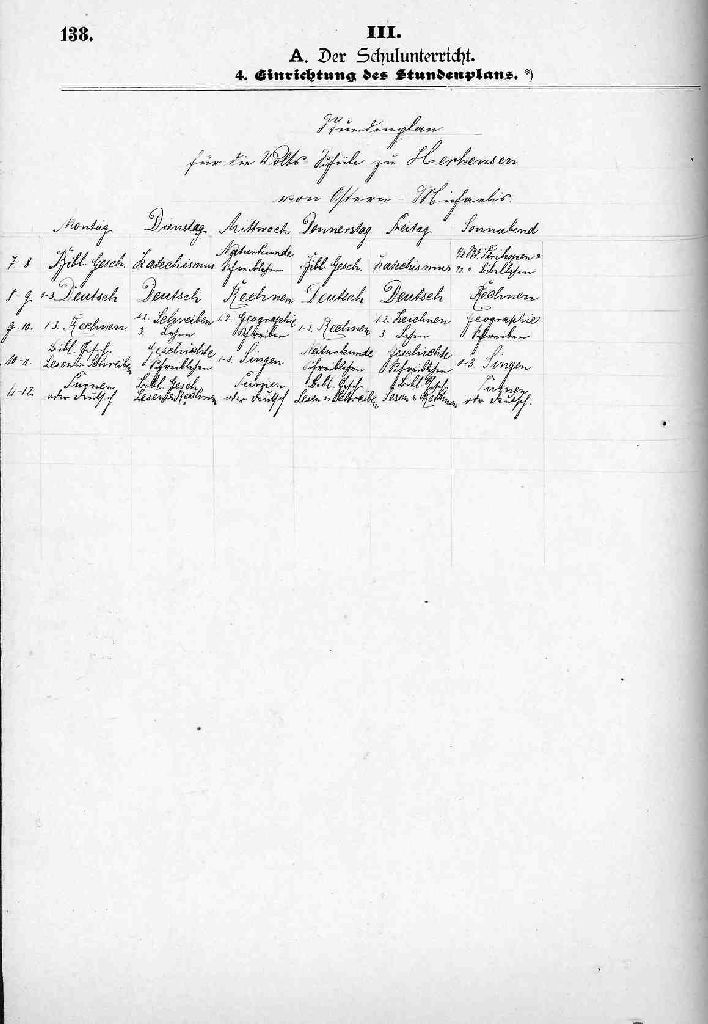 138.
III.
A. Der Schulunterricht.
4. Einrichtung des Stundenplans. *)
Stundenplan
für die Volks Schule zu Herhensen
von Ostern - Michaelis.
Montag Dienstag Mittwoch Donnerstag Freitag Sonnabend
7-8 Bibl. Gesch. Katechismus Naturkunde Schreiblesen Bibl. Gesch. Katechismus Bibellesen
8-9. 1-3 Deutsch Deutsch Rechnen Deutsch Deutsch Rechnen
9-10. 1-3. Rechnen 1-2. Schreiben 3. Lesen 1-2. Geographie Schreiben 1-3. Rechnen 1-2. Zeichnen 3 Lesen Geographie Schreiben
10-11. Bibl. Gesch. Lesen u. Schreiben Geschichte Schreiblesen 1-3. Singen Naturkunde Schreiblesen Geschichte Schreiblesen 1-3. Singen
11-12. Turnen oder Deutsch Bibl. Gesch. Lesen u. Rechnen Turnen oder Deutsch Bibl. Gesch. Lesen u. Schreiben Bibl. Gesch. Lesen u. Rechnen Turnen oder Deutsch.